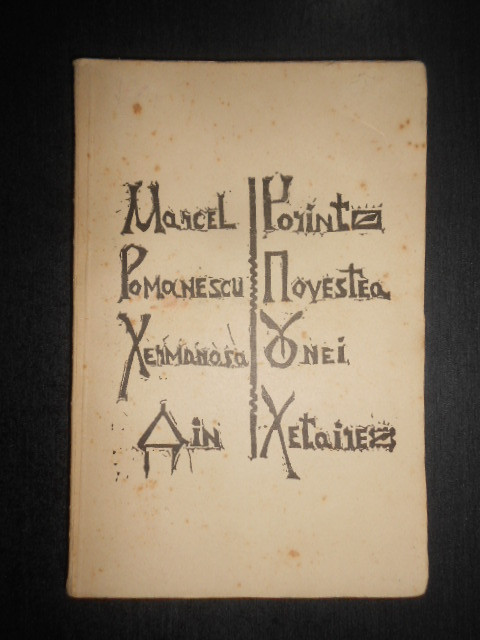 Marcel
Ρomanescu
Xermanosa
Δin
Korint
Πovestea
Ȣnei
Xetaire